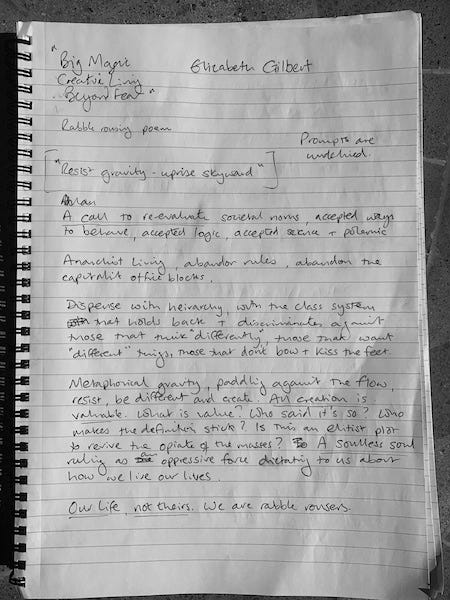 "Big Magic
Creative Living
Beyond Fear"
Elizabeth Gilbert
Rabble rousing poem
Prompts are
underlined.
["Resist gravity - uprise skyward"]
Plan
A call to re-evaluate societal norms, accepted ways
to behave, accepted logic, accepted science + polemic
Anarchist living, abandon rules, abandon the
capitalist office blocks.
Dispense with heirarchy, with the class system
that holds back + discriminates against
those that think "differently, those that want
"different" things, those that dont bow + kiss the feet
Metaphorical gravity, paddling against the flow,
resist, be different and create. All creation is
valuable. What is value? Who said it's so? Who
makes the defining stick? Is this an elitist plot
to revive the opiate of the masses? A soulless soul
ruling as an oppressive force dictating to us about
how we live our lives.
Our life, not theirs. We are rabble rousers.